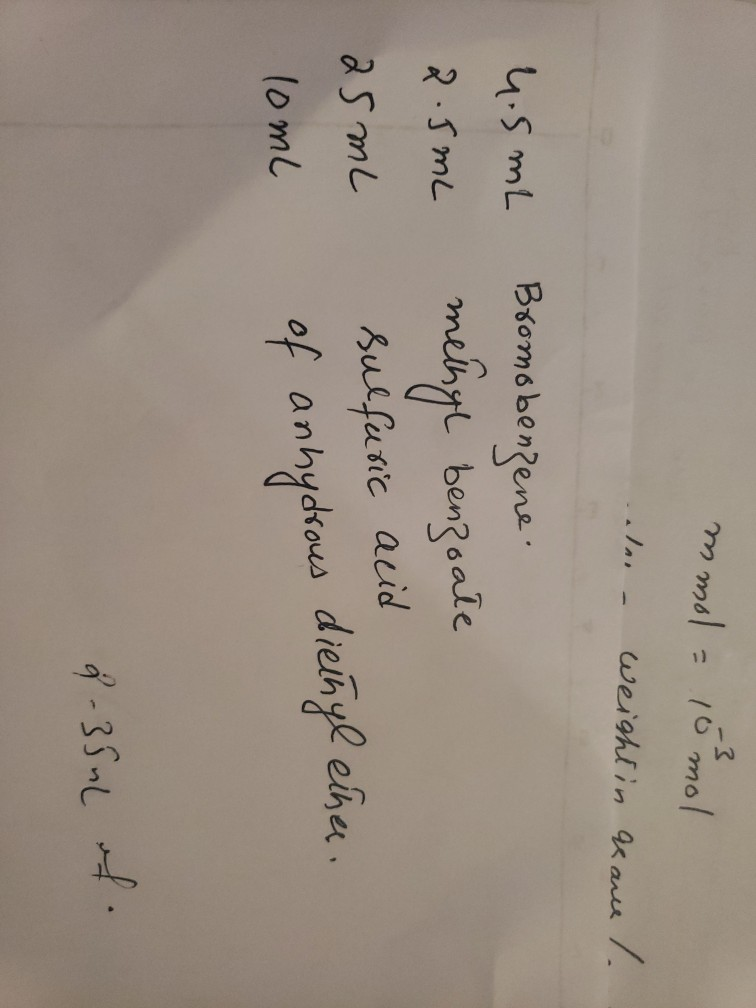 m mol = 10⁻³ mol
weight in
4.5 mL Bromobenzene.
2.5 mL methyl benzoate
25 mL sulfuric acid
10 mL of anhydrous diethyl ether.